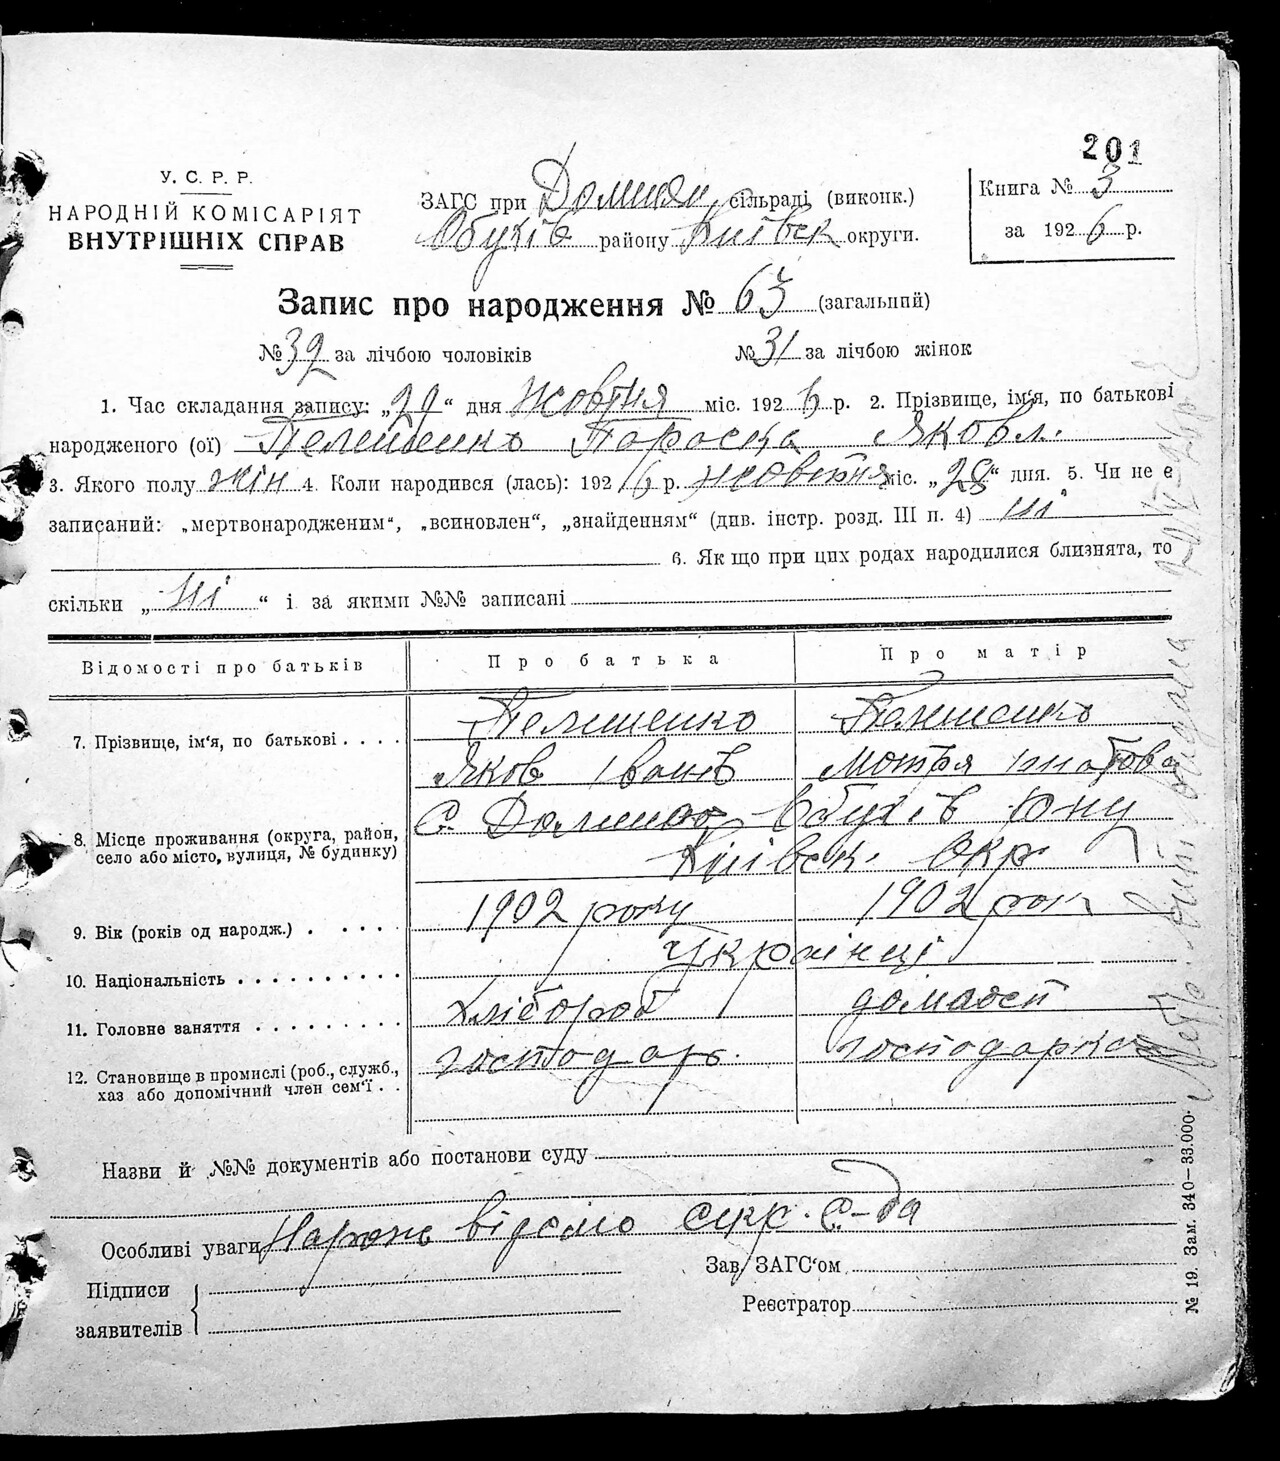 201
У. С. Р. Р.
НАРОДНІЙ КОМІСАРІЯТ
ВНУТРІШНІХ СПРАВ
ЗАГС при сільраді (виконк.)
Обухів району Київськ округи.
Книга № 3
за 1926 р.
Запис про народження № 63 (загальний)
№ 32 за лічбою чоловіків № 31 за лічбою жінок
1. Час складання запису: „29“ дня Жовтня міс. 1926 р. 2. Прізвище, ім'я, по батькові
народженого (ої) Параска Яковл.
3. Якого полу жін 4. Коли народився (лась): 1926 р. жовтня міс. „28“ дня. 5. Чи не є
записаний: „мертвонародженим“, „всиновлен“, „знайденням“ (див. інстр. розд. III п. 4) ні
6. Як що при цих родах народилися близнята, то
скільки „ні“ і за якими №№ записані
Відомості про батьків Про батька Про матір
7. Прізвище, ім'я, по батькові . . . .
Яков Іванів Мотря Гнатова
8. Місце проживання (округа, район,
село або місто, вулиця, № будинку)
С. Обухів р-ну
Київськ. Окр.
9. Вік (років од народж.) . . . . . 1902 року 1902 рок
10. Національність . . . . . . . . . . Українці
11. Головне заняття . . . . . . . . . Хлібороб домаосп
12. Становище в промислі (роб., служб.,
хаз або допомічний член сем'ї . .
господарь. господарка
Назви й №№ документів або постанови суду
Особливі уваги
Підписи
заявителів
Зав. ЗАГС'ом
Реєстратор
№ 19. Зам. 340—33.000.